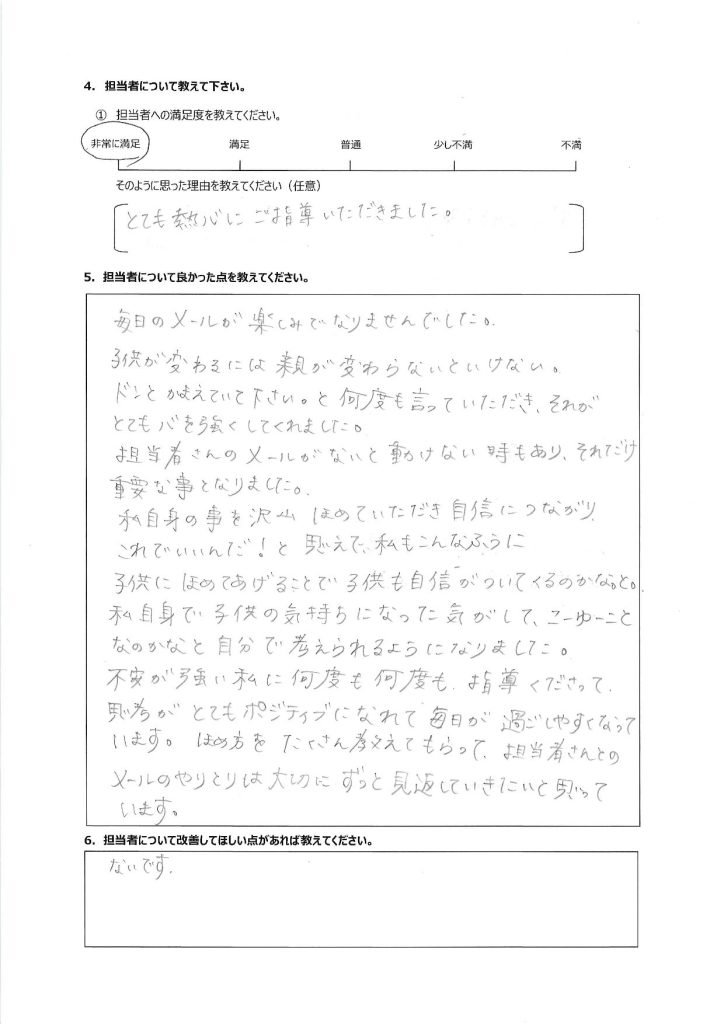 4. 担当者について教えて下さい。
① 担当者への満足度を教えてください。
非常に満足 満足 普通 少し不満 不満
そのように思った理由を教えてください（任意）
とても熱心にご指導いただきました。
5. 担当者について良かった点を教えてください。
毎日のメールが楽しみでなりませんでした。
子供が変わるには親が変わらないといけない。
ドンとかまえていて下さい。と何度も言っていただき、それが
とても心を強くしてくれました。
担当者さんのメールがないと動けない時もあり、それだけ
重要な事となりました。
私自身の事を沢山ほめていただき自信につながり、
これでいいんだ！と思えて、私もこんなふうに
子供にほめてあげることで子供も自信がついてくるのかなっと。
私自身で子供の気持ちになった気がして、こーゆーこと
なのかなと自分で考えられるようになりました。
不安が強い私に何度も何度も、指導くださって、
思考がとてもポジティブになれて毎日が過ごしやすくなって
います。ほめ方をたくさん教えてもらって、担当者さんとの
メールのやりとりは大切にずっと見返していきたいと思って
います。
6. 担当者について改善してほしい点があれば教えてください。
ないです。